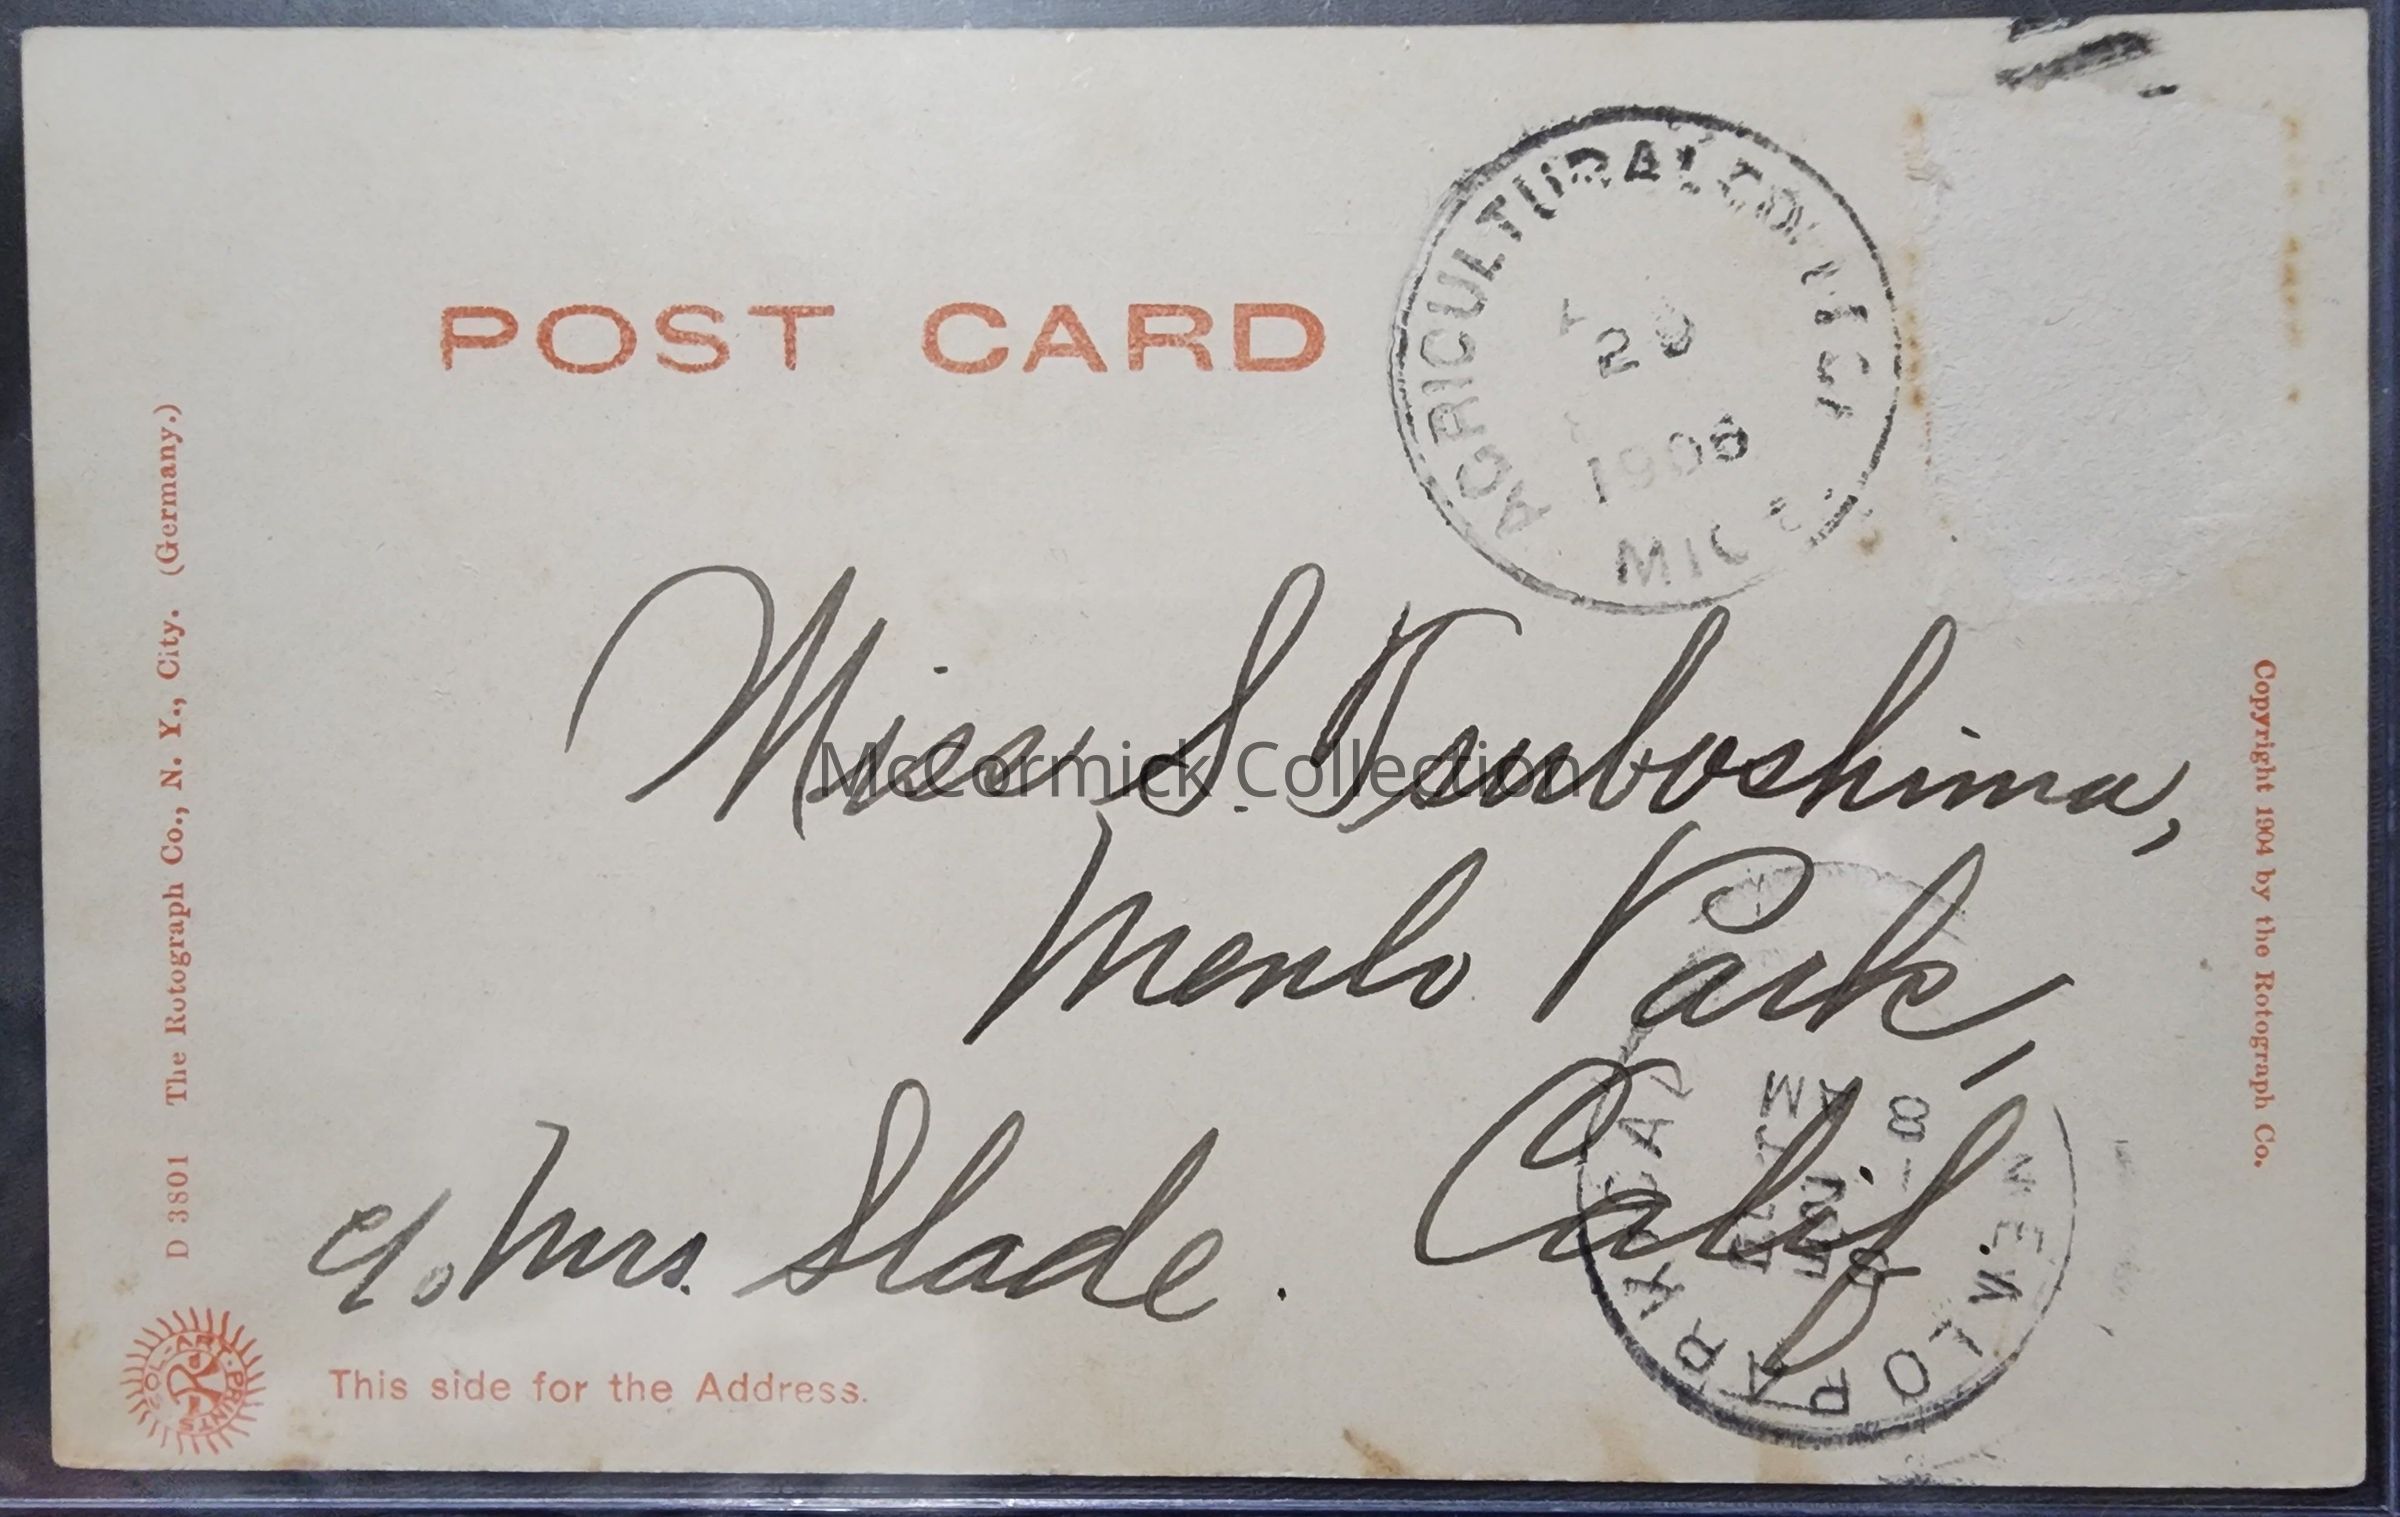 POST CARD
AGRICULTURAL COLLEGE
1906
MICH
Miss S. Tsuboshima,
McCormick Collection
Menlo Park,
Calif.
c/o Mrs. Slade.
MENLO PARK CAL
SEP
8 -
AM
This side for the Address.
D 3801 The Rotograph Co., N. Y., City. (Germany.)
Copyright 1904 by the Rotograph Co.
SOL-ART PRINTS